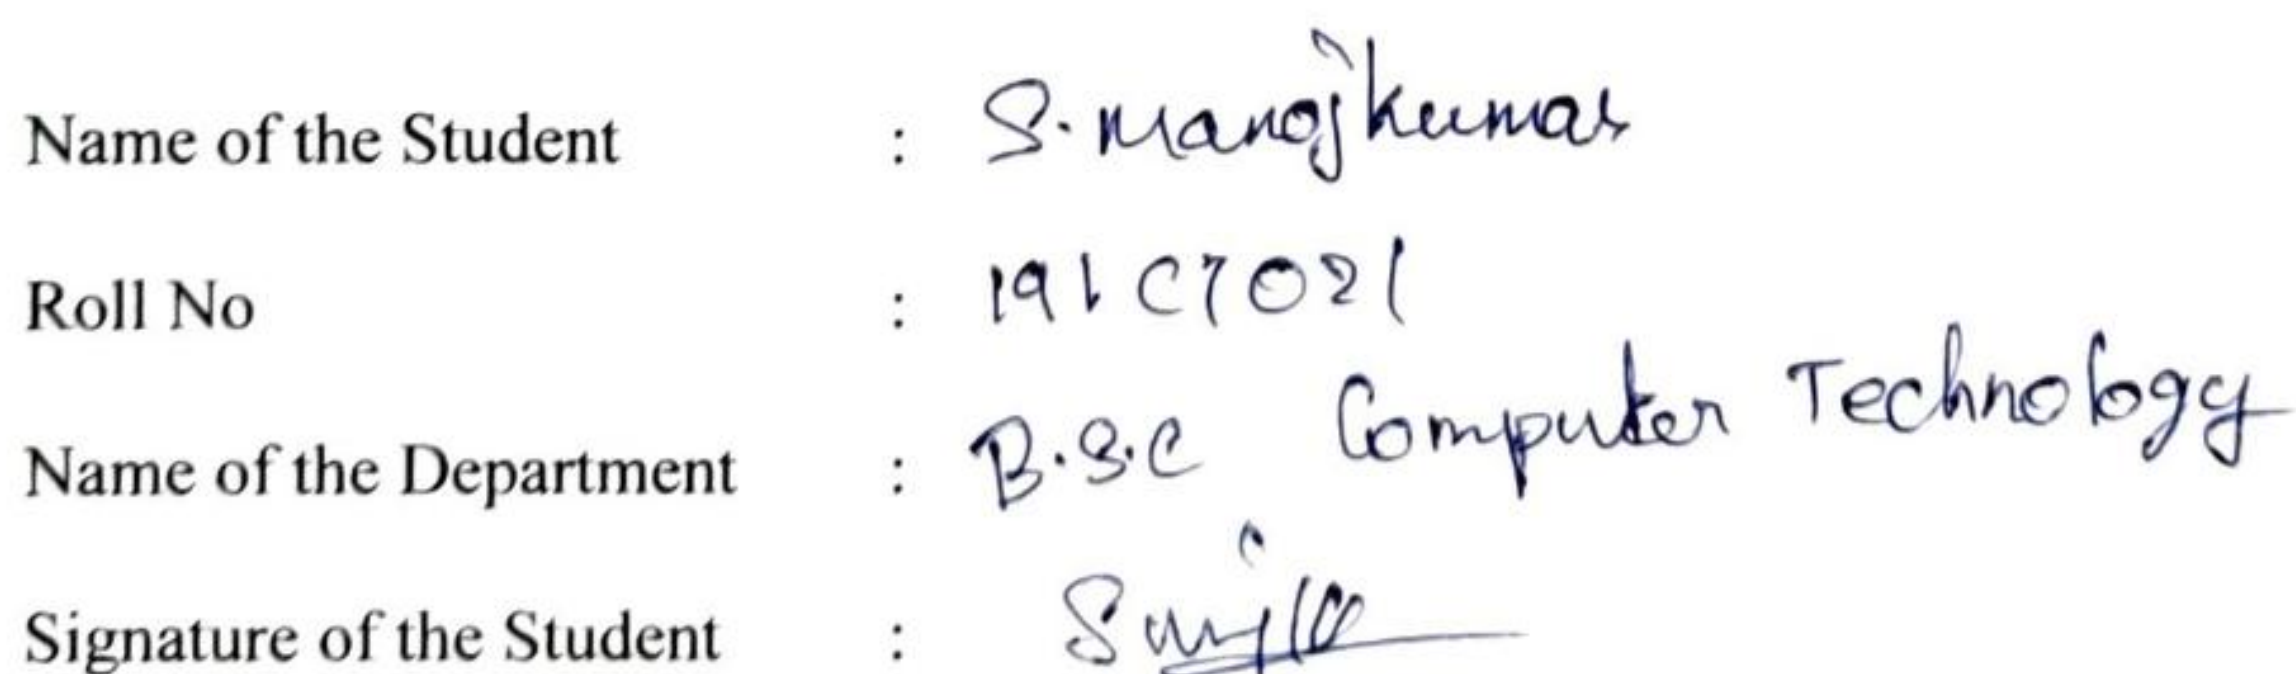 Name of the Student : S. Manojkumar
Roll No : 191CT021
Name of the Department : B.S.C Computer Technology
Signature of the Student :